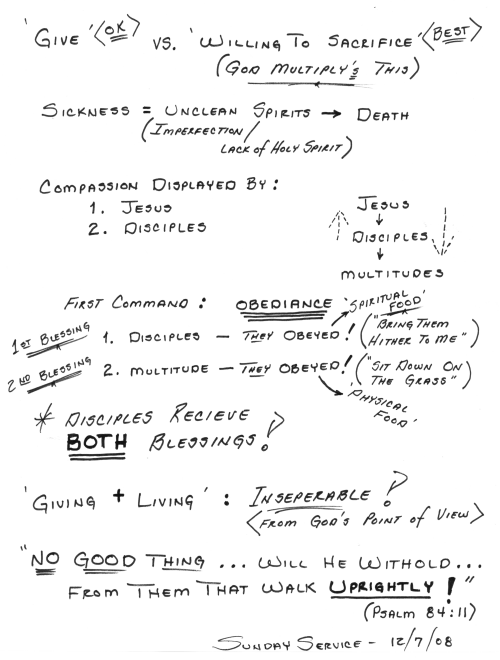 'GIVE' <OK> VS. 'WILLING TO SACRIFICE' <BEST>
(GOD MULTIPLY'S THIS)
SICKNESS = UNCLEAN SPIRITS → DEATH
(IMPERFECTION/
LACK of HOLY SPIRIT)
COMPASSION DISPLAYED BY:
1. JESUS
2. DISCIPLES
JESUS
↓
DISCIPLES
↓
MULTITUDES
FIRST COMMAND: OBEDIANCE 'SPIRITUAL
FOOD'
1ST BLESSING 1. DISCIPLES – THEY OBEYED! ("BRING THEM
HITHER TO ME")
2ND BLESSING 2. MULTITUDE – THEY OBEYED! ("SIT DOWN ON
THE GRASS")
'PHYSICAL
FOOD'
* DISCIPLES RECIEVE
BOTH BLESSINGS!
'GIVING + LIVING' : INSEPERABLE!
<FROM GOD'S POINT OF VIEW>
"NO GOOD THING ... WILL HE WITHOLD...
FROM THEM THAT WALK UPRIGHTLY!"
(PSALM 84:11)
SUNDAY SERVICE – 12/7/08